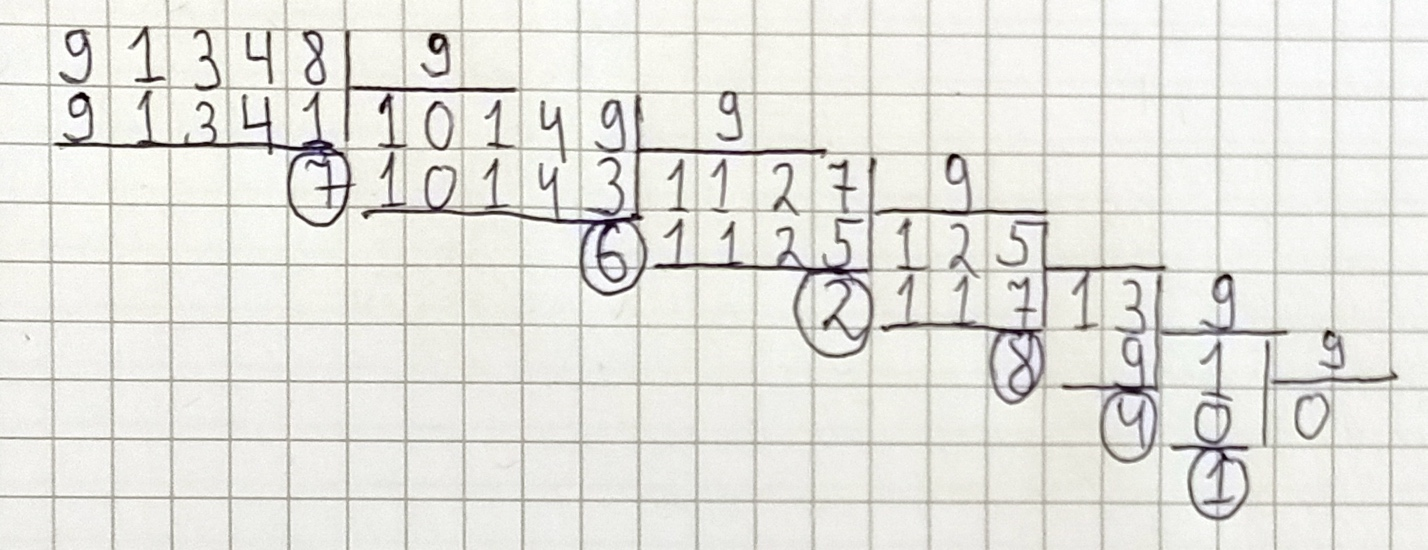 9 1 3 4 8 9
9 1 3 4 1 1 0 1 4 9 9
7 1 0 1 4 3 1 1 2 7 9
6 1 1 2 5 1 2 5
2 1 1 7 1 3 9
8 9 1 9
4 0 0
1